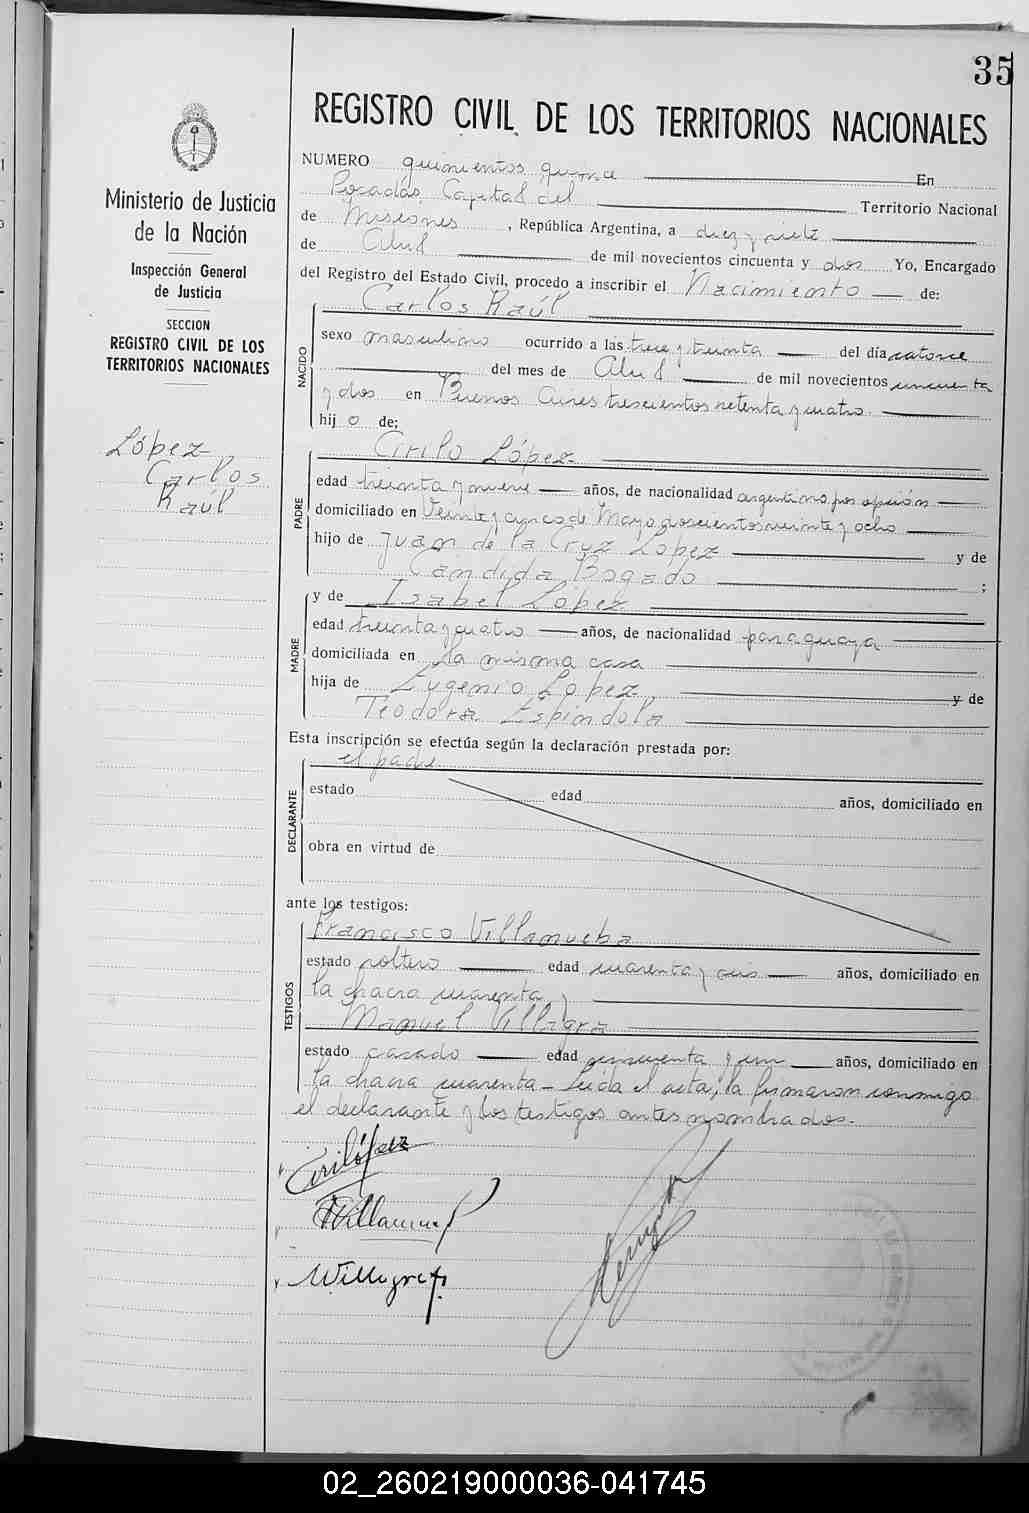 35
REGISTRO CIVIL DE LOS TERRITORIOS NACIONALES
Ministerio de Justicia
de la Nación
Inspección General
de Justicia
SECCION
REGISTRO CIVIL DE LOS
TERRITORIOS NACIONALES
López
Carlos
Raúl
NUMERO quinientos quince En
Posadas, Capital del Territorio Nacional
de Misiones, República Argentina, a diez y siete
de Abril de mil novecientos cincuenta y dos Yo, Encargado
del Registro del Estado Civil, procedo a inscribir el Nacimiento de:
Carlos Raúl
NACIDO
sexo masculino ocurrido a las trece y treinta del día catorce
del mes de Abril de mil novecientos cincuenta
y dos en Buenos Aires trescientos setenta y cuatro
hijo de:
Cirilo López
PADRE
edad treinta y nueve años, de nacionalidad argentino por opción
domiciliado en Veinte y cinco de Mayo doscientos veinte y ocho
hijo de Juan de la Cruz López y de
Candida Bogado ;
y de Isabel López
MADRE
edad treinta y cuatro años, de nacionalidad paraguaya
domiciliada en la misma casa
hija de Eugenio López y de
Teodora Espíndola
Esta inscripción se efectúa según la declaración prestada por:
el padre
DECLARANTE
estado edad años, domiciliado en
obra en virtud de
ante los testigos:
Francisco Villanueba
TESTIGOS
estado soltero edad cuarenta y seis años, domiciliado en
la chacra cuarenta y
Manuel Villagra
estado casado edad cincuenta y un años, domiciliado en
la chacra cuarenta - Leída el acta, la firmaron conmigo
el declarante y los testigos antes nombrados.
Cirilo López
02_260219000036-041745